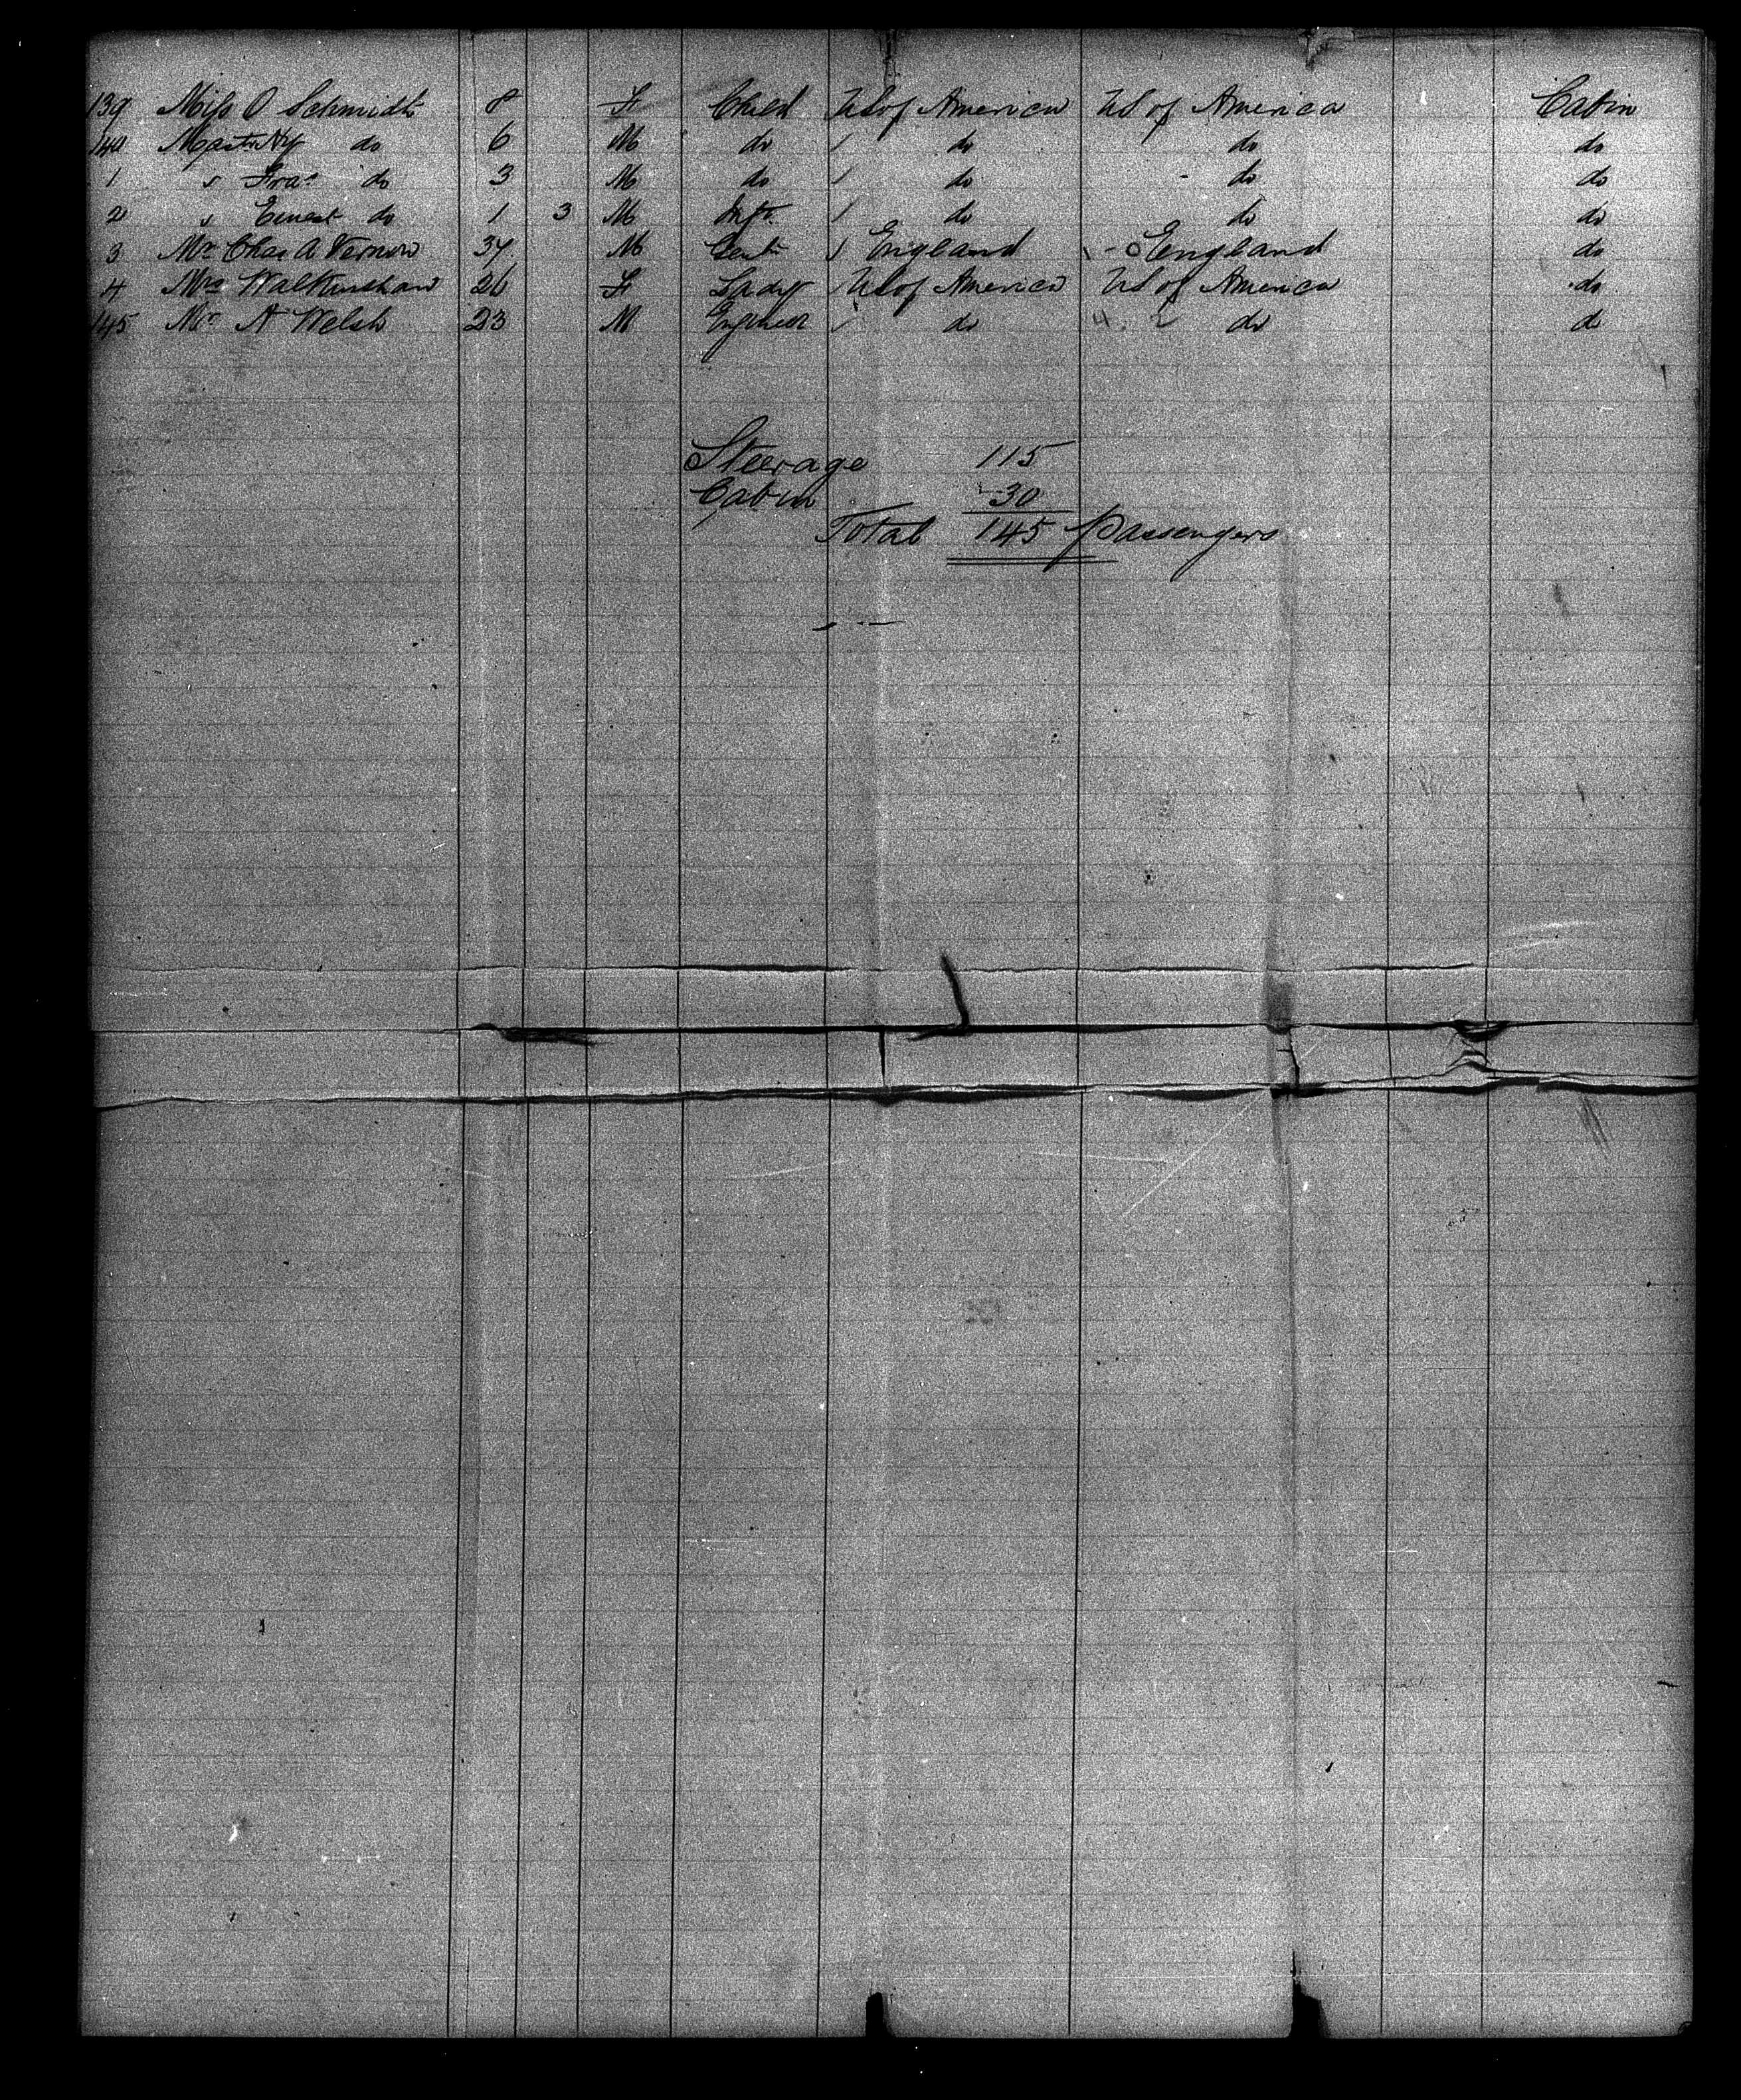 139 Miss O Schmidt 8 F Child US of America US of America Cabin
140 Mastr Hy do 6 M do / do do do
1 " Fras do 3 M do / do do do
2 " Ernest do 1 3 M Inft / do do do
3 Mr Chas A Vernon 37 M Gent / England England do
4 Mrs Walkinshaw 26 F Lady / US of America US of America do
145 Mr A Welsh 23 M Engineer / do do do
Steerage 115
Cabin 30
Total 145 passengers